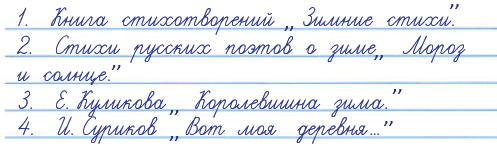 1. Книга стихотворений „Зимние стихи".
2. Стихи русских поэтов о зиме „Мороз
и солнце."
3. Е. Куликова „Королевишна зима."
4. И. Суриков „Вот моя деревня..."